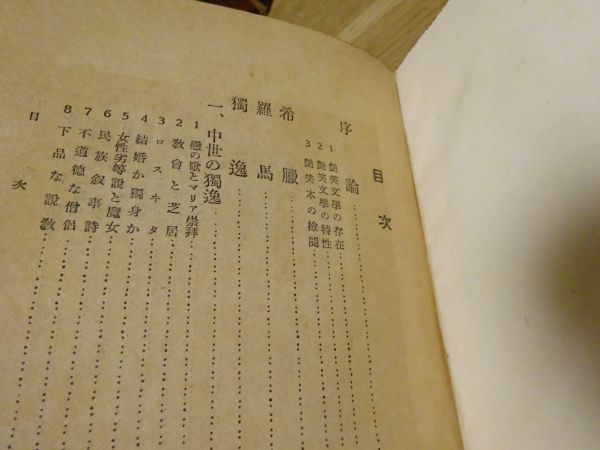 目次
序論
1 艶笑文學の存在
2 艶笑文學の特性
3 艶笑本の檢閱
希臘
羅馬
獨逸
一、中世の獨逸
1 戀の歌とマリア崇拜
2 敎會と芝居
3 ロスヰタ
4 結婚か獨身か
5 女性劣等說と魔女
6 民族敍事詩
7 不道德な僧侶
8 下品な說敎
目次